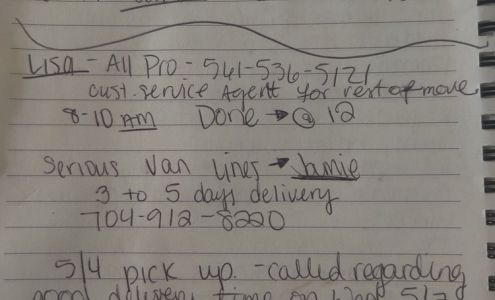 Lisa - All Pro - 541-536-5121
cust. service Agent for rest of move
8-10 AM Done → @ 12
Serious Van Lines → Jamie
3 to 5 days delivery
704-912-8220
5/4 pick up. - called regarding
good delivery time on